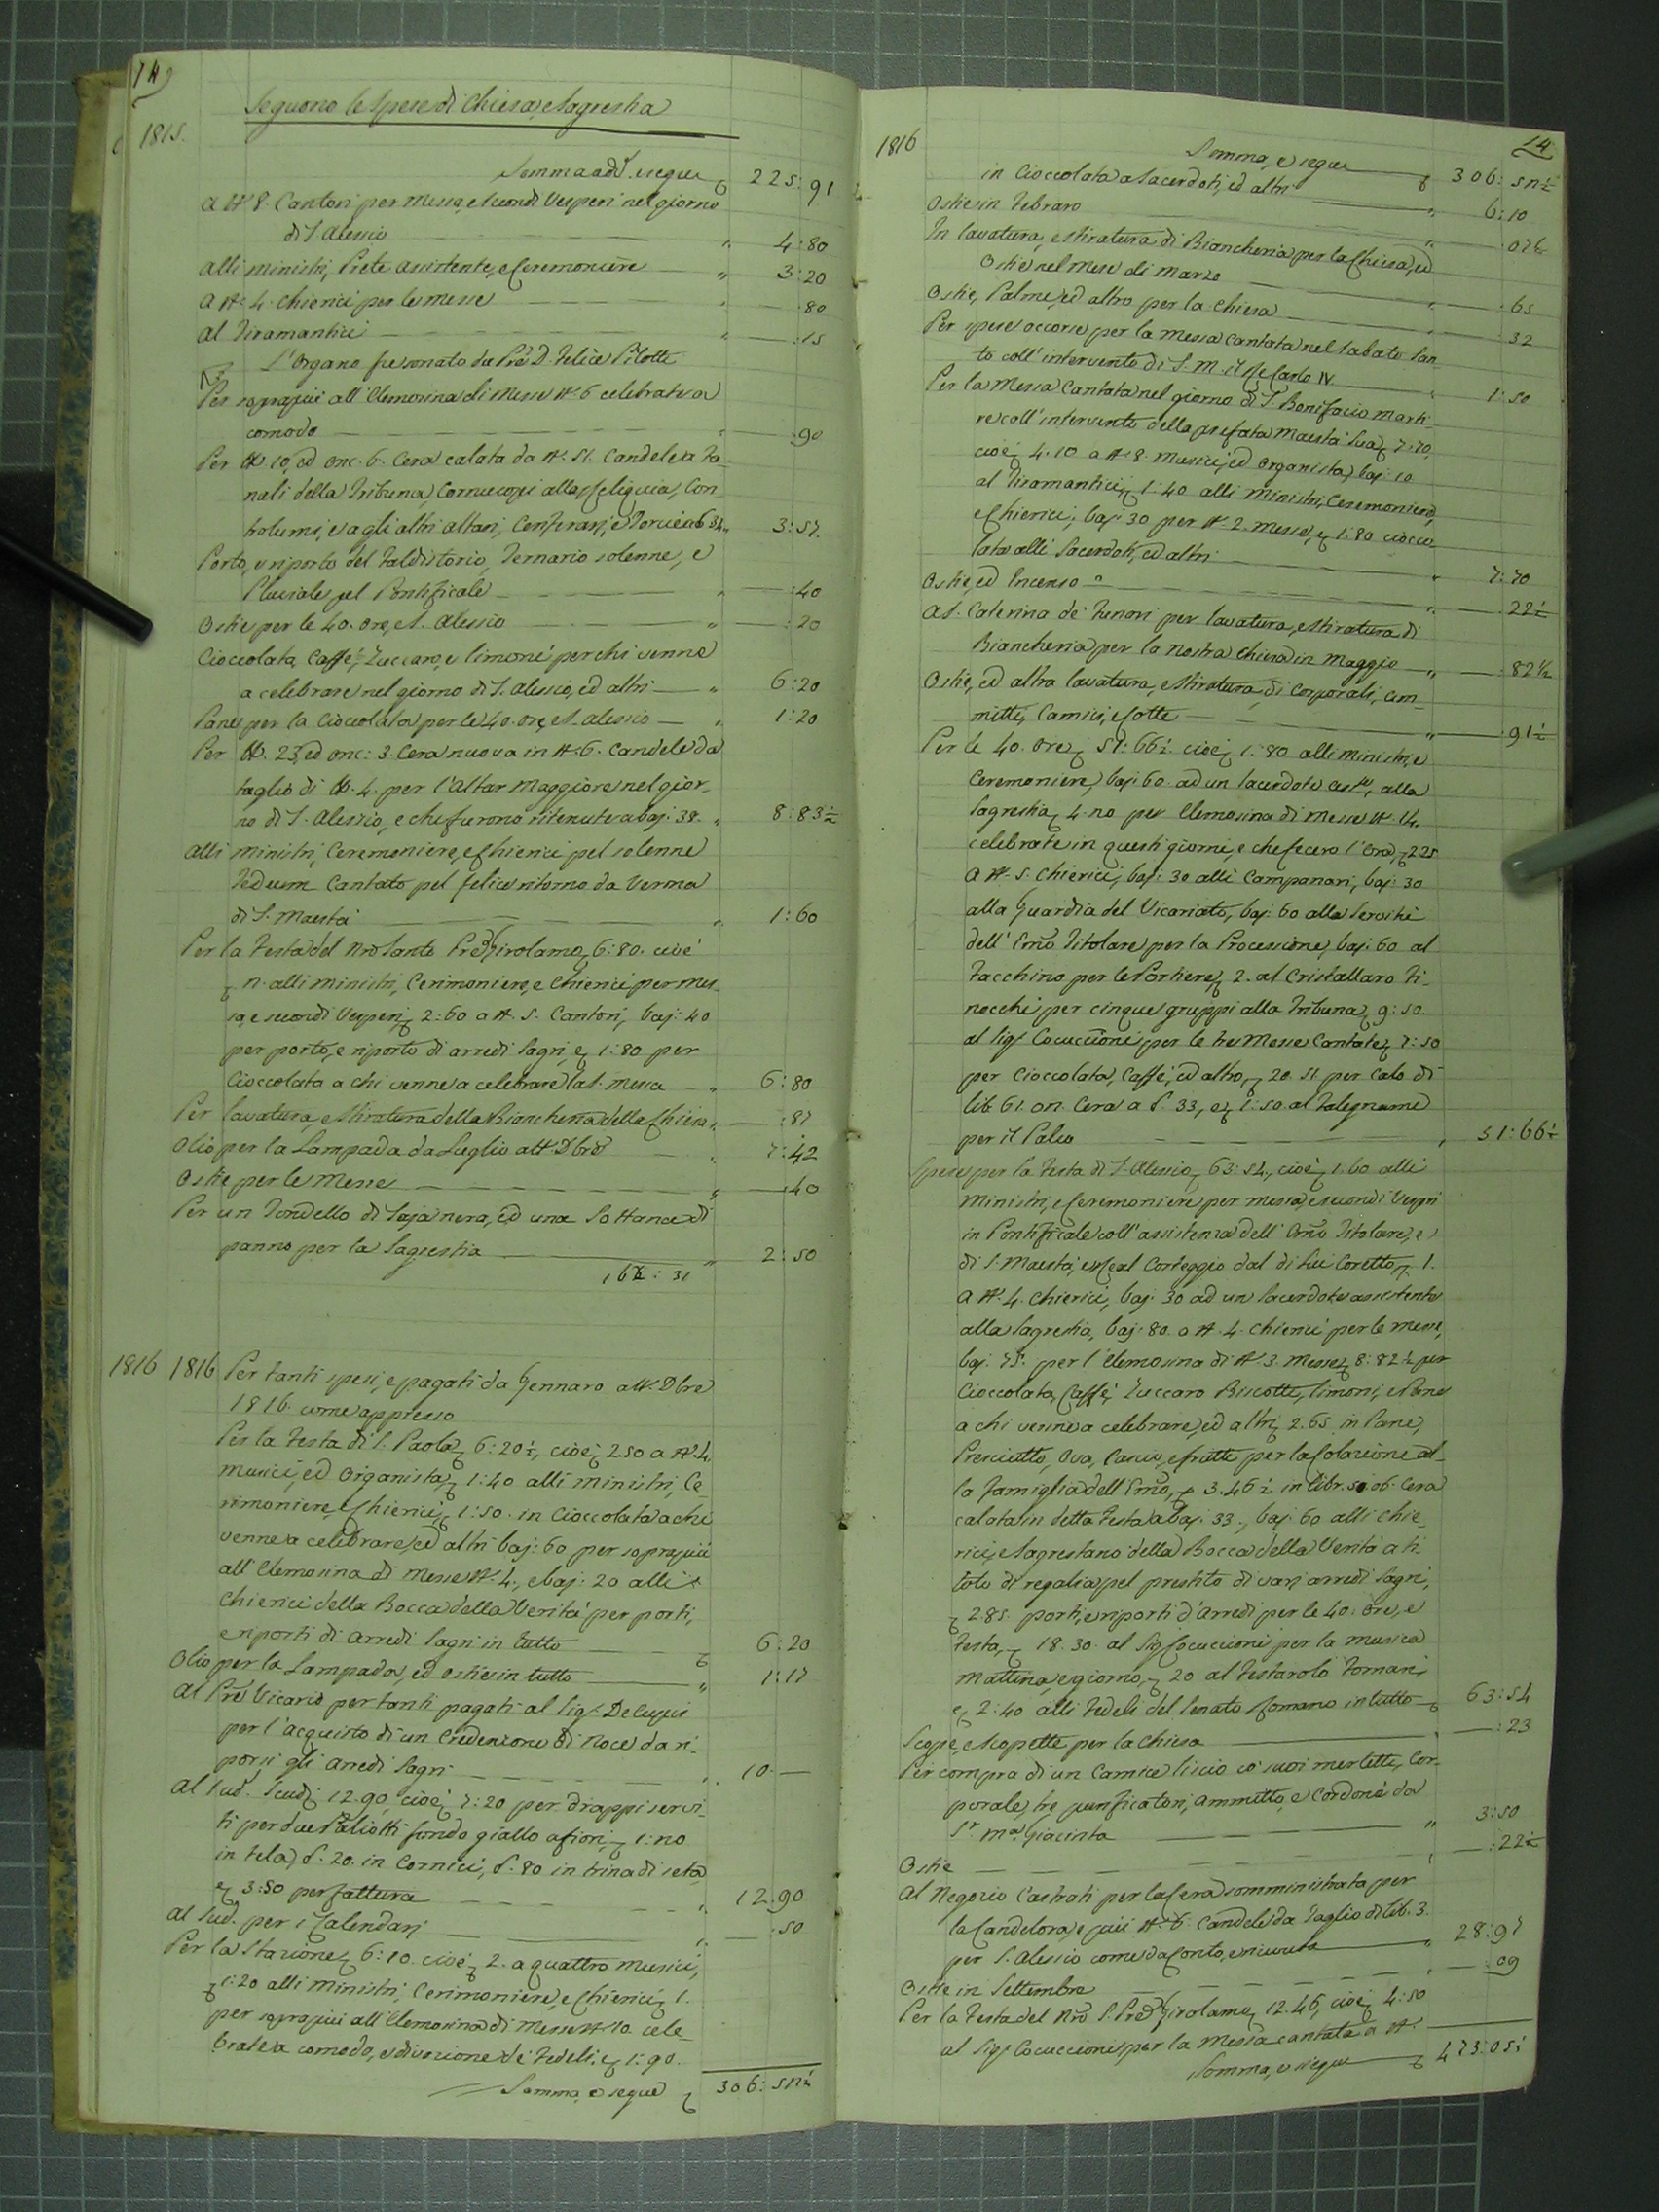 14
Seguono le Spese di Chiesa, e Sagrestia
1815.
Somma add. e segue 225:91
a N. 8. Cantori per Messa, e Secondi Vesperi nel giorno
di S. Alessio 4:80
alli Ministri, Prete assistente, e Ceremoniere 3:20
a N. 4. Chierici per le messe :80
al Tiramantici :15
L'Organo fu sonato da Pre D. Felice Pilotti
Per soprapiù all'Elemosina di Messe N. 6 celebrate a
comodo :90
Per lb. 10, ed onc. 6. Cera calata da N. 51. Candele a Fa-
nali della Tribuna, Cornucopj alla Reliquia, Con
trolumi, e agli altri altari, Centerarj, e Torcie a b 34 3:57.
Porto, e riporto del Faldistorio, Ternario solenne, e
Pluviale pel Pontificale :40
Ostie per le 40. ore, e S. Alessio :20
Cioccolata, Caffé, Zuccaro, e limoni per chi venne
a celebrare nel giorno di S. Alessio, ed altri 6:20
Pane per la Cioccolata per le 40. ore, e S. Alessio 1:20
Per lb. 23, ed onc: 3. Cera nuova in N. 6. Candele da
taglio di lb. 4. per l'Altar Maggiore nel gior-
no di S. Alessio, e che furono ritenute a baj. 38. 8:83½
alli Ministri, Ceremoniere, e Chierici pel solenne
Tedeum Cantato pel felice ritorno da Verona
di S. Maestà 1:60
Per la Festa del Nro Santo Pre Girolamo 6:80. cioè
2. alli Ministri, Cerimoniere, e Chierici per Mes-
sa, e secondi Vesperi, 2:60 a N. 5. Cantori, baj: 40
per porto, e riporto di arredi Sagri, e 1:80 per
Cioccolata a chi venne a celebrare la S. Messa 6:80
Per lavatura, e stiratura della Biancheria della Chiesa :87
Olio per la Lampada da Luglio a tt. Dbre 7:42
Ostie per le Messe :40
Per un Tondello di Saja nera, ed una Sottana di
panno per la Sagrestia 2:50
1816 1816 Per tanti spesi, e pagati da Gennaro a tt. Dbre
1816. come appresso
Per la Festa di S. Paola 6:20½, cioè 2.50 a N. 4.
Musici, ed Organista, 1:40 alli Ministri, Ce-
rimoniere, e Chierici, 1:50. in Cioccolata a chi
venne a celebrare, ed altri baj: 60 per soprapiù
all'Elemosina di Messe N. 4., e baj: 20 alli
Chierici della Bocca della Verità per porti,
e riporti di Arredi Sagri in tutto 6:20
Olio per la Lampada, ed ostie in tutto 1:17
Al Pre Vicario per tanti pagati al Sig.
per l'acquisto di un Credenzone di Noce da ri-
porsi gli Arredi Sagri 10.—
Al Sud. Scudi 12.90, cioè 7:20 per drappi servi-
ti per due Paliotti fondo giallo a fiori,
in tela, S. 20. in Cornici, S. 80 in trina di seta
e 3:50 per fattura 12.90
Al Sud. per i Calendarj :50
Per la Stazione 6:10. cioè 2. a quattro Musici,
1:20 alli Ministri, Cerimoniere, e Chierici, 1.
per soprapiù all'Elemosina di Messe N. 10. cele-
brate a comodo, e divozione de' Fedeli, e 1:90.
Somma, e segue
1816
14
Somma, e segue
in Cioccolata a Sacerdoti, ed altri 6:10
Ostie in Febraro :07½
In lavatura, e stiratura di Biancheria per la Chiesa, ed
Ostie nel Mese di Marzo :65
Ostie, Palme, ed altro per la Chiesa :32
Per spese occorse per la Messa cantata nel Sabato San
to coll'intervento di S. M. il Re Carlo IV. 1:50
Per la Messa Cantata nel giorno di S. Bonifacio Marti-
re coll'intervento della prefata Maestà Sua 7:70.
cioè 4.10 a N. 8. Musici, ed Organista, baj: 10
al Tiramantici, 1:40 alli Ministri, Ceremoniere,
e Chierici, baj: 30 per N. 2. Messe, e 1:80 ciocco
lata alli Sacerdoti, ed altri 7:70
Ostie, ed Incenso :22½
A S. Caterina de' Funari per lavatura, e stiratura di
Biancheria per la nostra Chiesa in Maggio :82½
Ostie, ed altra lavatura, e stiratura di Corporali, am-
mitti, Camici, e Cotte :91½
Per le 40. ore 51:66½. cioè 1:80 alli Ministri, e
Ceremoniere, baj: 60. ad un Sacerdote alla
Sagrestia, per Elemosina di Messe N. 14.
celebrate in questi giorni, e che fecero l'ora, 2.25
a N. 5. Chierici, baj: 30 alli Campanari, baj: 30
alla Guardia del Vicariato, baj: 60 alla Servitù
dell'Emo Titolare per la Processione, baj: 60 al
Facchino per le Portiere, 2. al Cristallaro Fi-
nocchi per cinque gruppi alla Tribuna, 9:50.
al Sig. Cocuccioni per le tre Messe Cantate, 7:50
per Cioccolata, Caffé, ed altro, 20. 51. per Calo di
lib. 61. on. Cera a S. 33, e 1:50. al Falegname
per il Palco 51:66½
Spese per la Festa di S. Alessio 63:54., cioè 1.60 alli
Ministri, e Ceremoniere per messa, e secondi Vespri
in Pontificale coll'assistenza dell'Emo Titolare, e
di S. Maestà, e Real Corteggio dal di Lui Coretto, 1.
a N. 4. Chierici, baj: 30 ad un Sacerdote assistente
alla Sagrestia, baj: 80. a N. 4. Chierici per le messe,
baj: 75. per l'Elemosina di N. 3. Messe 8:82½ per
Cioccolata, Caffé, Zuccaro, Biscotti, limoni, e Pane
a chi venne a celebrare, ed altri, 2.65 in Pane,
Presciutto, Ova, Cascio, e frutti per la Colazione al-
la Famiglia dell'Emo, 3.46½ in libr. Cera
calata in detta Festa a baj: 33., baj: 60 alli Chie-
rici, e Sagrestano della Bocca della Verità a ti-
tolo di regalia pel prestito di varj arredi Sagri,
2.85. porti, e riporti d'Arredi per le 40: ore, e
Festa, 18.30. al Sig. Cocuccioni per la musica
mattina, e giorno, 20 al Festarolo Fornari,
e 2:40 alli Fedeli del Senato Romano in tutto 63:54
Scope, e Scopette per la Chiesa :23
Per compra di un Camice liscio co' suoi merletti, Cor-
porale, tre purificatori, ammitto, e Cordone da
Sr. Ma. Giacinta 3:50
Ostie :22½
Al Negozio Castrati per la Cera somministrata per
la Candelora, e più N. 6. Candele da Taglio di lib. 3.
per S. Alessio come da Conto, e ricevuta 28:97
Ostie in Settembre :09
Per la Festa del Nro S. Pre Girolamo 12.46, cioè 4:50
al Sig. Cocuccioni per la Messa cantata a N.
Somma, e segue 473:05½